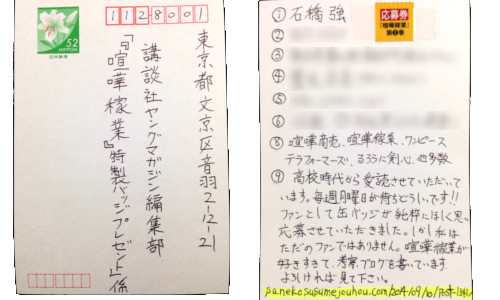 52
NIPPON
1128001
東京都文京区音羽2-12-21
講談社ヤングマガジン編集部
『喧嘩稼業』特製バッジプレゼント係
① 石橋 強
応募券
『喧嘩稼業』
第2巻
②
③
④
⑤
⑥
⑧ 喧嘩商売、喧嘩稼業、ワンピース
テラフォーマーズ、るろうに剣心、他多数
⑨ 高校時代から愛読させていただいて
います。毎週月曜日が待ちどうしいです!!
ファンとして缶バッジが純粋にほしく思い
応募させていただきました。しかし私は
ただのファンではありません。喧嘩稼業が
好きすぎて、考察ブログを書いています
よろければ見て下さい。